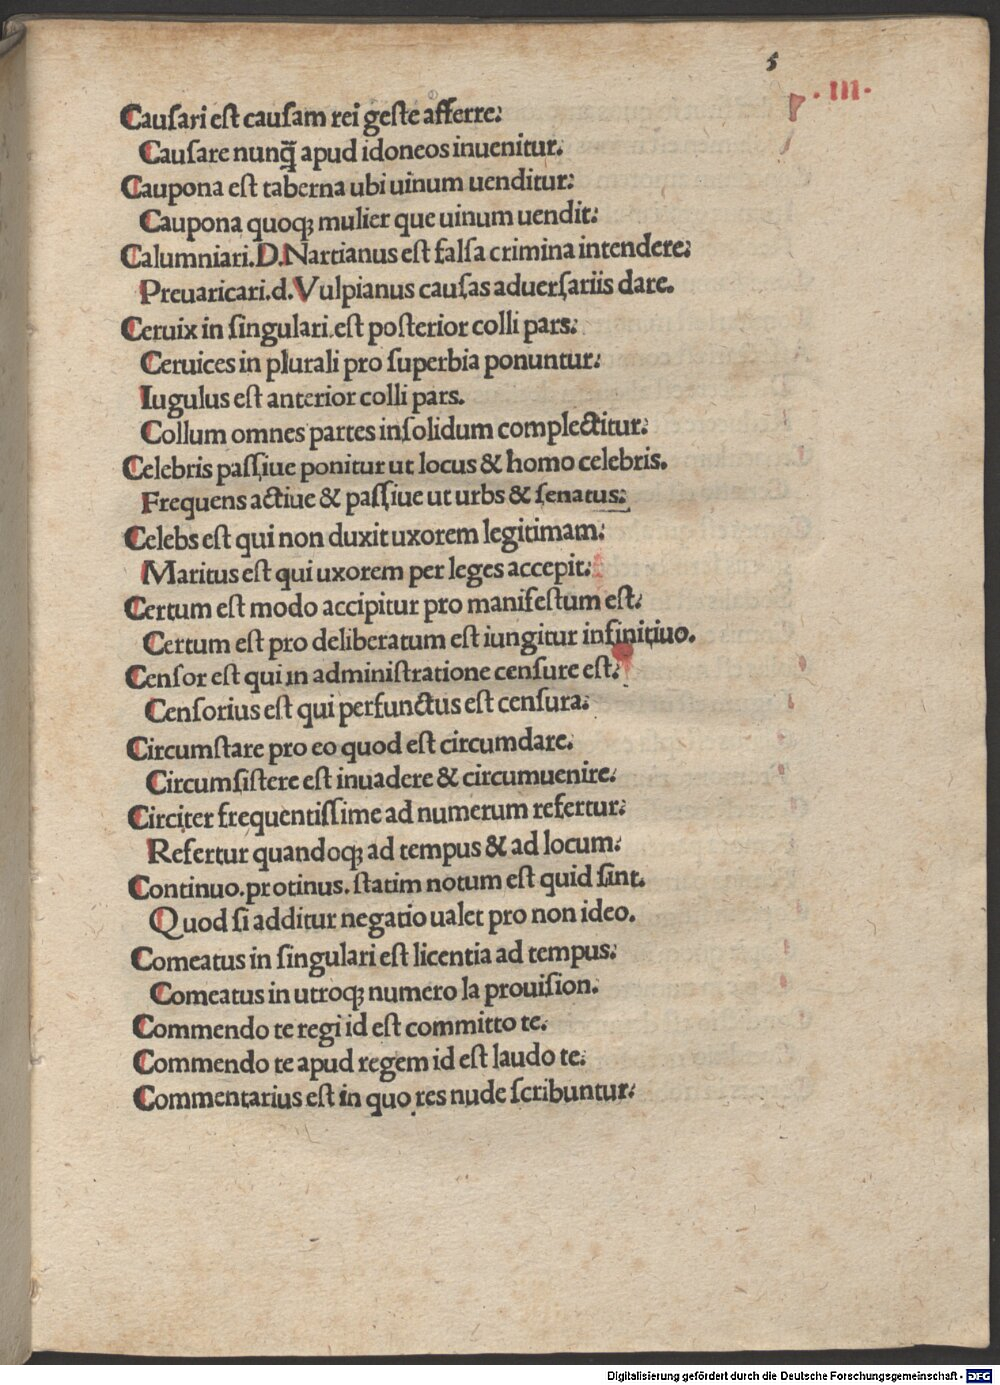 5
· III ·
Cauſari eſt cauſam rei geſte afferre:
Cauſare nunq̃ apud idoneos inuenitur.
Caupona eſt taberna ubi uinum uenditur:
Caupona quoqꝫ mulier que uinum uendit:
Calumniari.D.Nartianus eſt falſa crimina intendere:
Preuaricari.d.Vulpianus cauſas aduerſariis dare.
Ceruix in ſingulari.eſt poſterior colli pars:
Ceruices in plurali pro ſuperbia ponuntur:
Iugulus eſt anterior colli pars.
Collum omnes partes inſolidum complectitur:
Celebris paſſiue ponitur ut locus & homo celebris.
Frequens actiue & paſſiue ut urbs & ſenatus:
Celebs eſt qui non duxit uxorem legitimam:
Maritus eſt qui uxorem per leges accepit:
Certum eſt modo accipitur pro manifeſtum eſt:
Certum eſt pro deliberatum eſt iungitur infinitiuo.
Cenſor eſt qui in adminiſtratione cenſure eſt:
Cenſorius eſt qui perfunctus eſt cenſura:
Circumſtare pro eo quod eſt circumdare.
Circumſiſtere eſt inuadere & circumuenire:
Circiter frequentiſſime ad numerum refertur:
Refertur quandoqꝫ ad tempus & ad locum:
Continuo.protinus.ſtatim notum eſt quid ſint.
Quod ſi additur negatio ualet pro non ideo.
Comeatus in ſingulari eſt licentia ad tempus:
Comeatus in utroqꝫ numero la prouiſion.
Commendo te regi id eſt committo te.
Commendo te apud regem id eſt laudo te:
Commentarius eſt in quo res nude ſcribuntur:
Digitalisierung gefördert durch die Deutsche Forschungsgemeinschaft - DFG